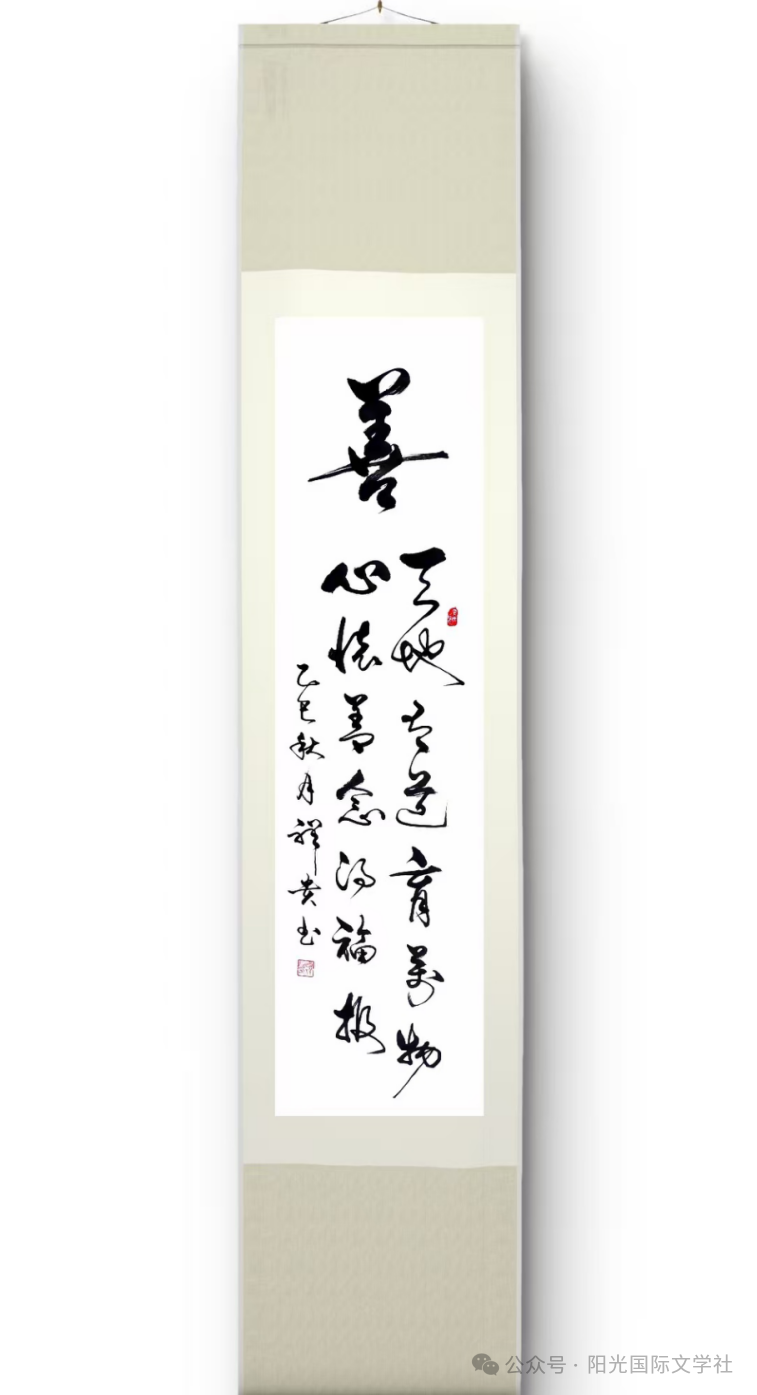 善
天地有道育萬物
心懷善念得福報
乙巳秋月祥贵书
公众号 · 阳光国际文学社